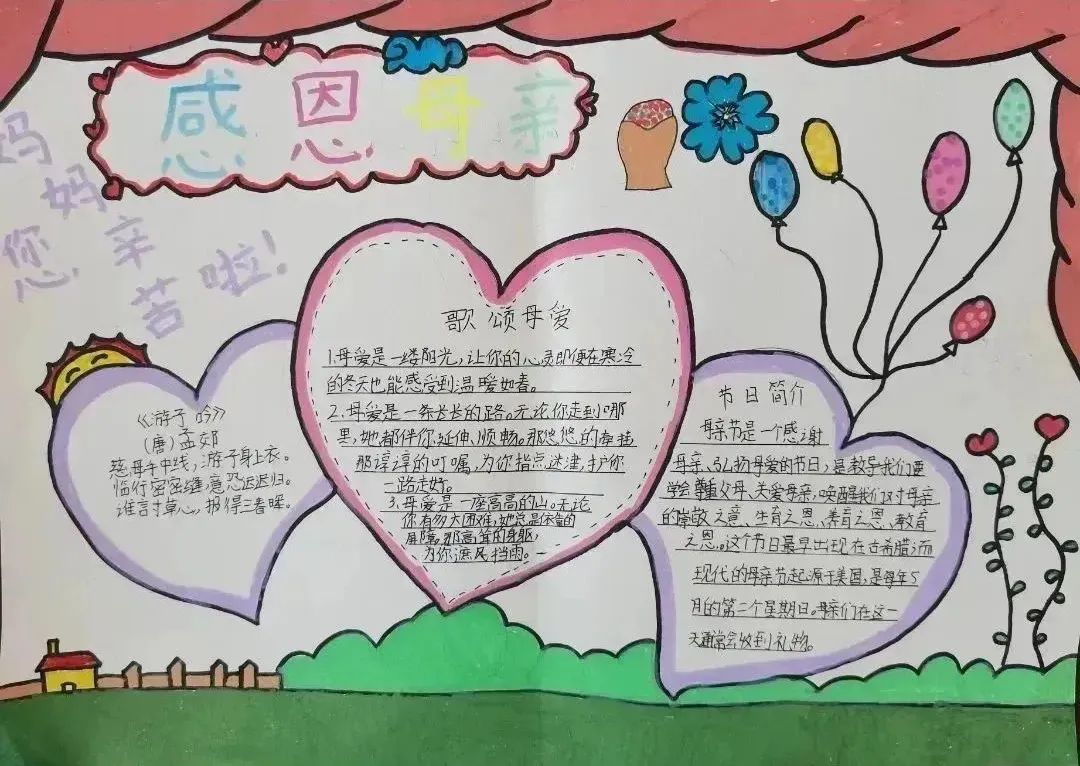 感恩母亲
妈妈
您辛苦啦!
《游子吟》
(唐)孟郊
慈母手中线,游子身上衣。
临行密密缝,意恐迟迟归。
谁言寸草心,报得三春晖。
歌颂母爱
1.母爱是一缕阳光,让你的心灵即便在寒冷
的冬天也能感受到温暖如春。
2.母爱是一条长长的路。无论你走到哪
里,她都伴你延伸、顺畅。那悠悠的牵挂
那谆谆的叮嘱,为你指点迷津,护你
一路走好。
3.母爱是一座高高的山。无论
你有多大困难,她总是你靠的
屏障,那高耸的身躯,
为你遮风挡雨。
节日简介
母亲节是一个感谢
母亲、弘扬母爱的节日,是教导我们要
学会尊重父母、关爱母亲,唤醒我们对母亲
的崇敬之意、生育之恩、养育之恩、教育
之恩。这个节日最早出现在古希腊;而
现代的母亲节起源于美国,是每年5
月的第二个星期日。母亲们在这一
天通常会收到礼物。